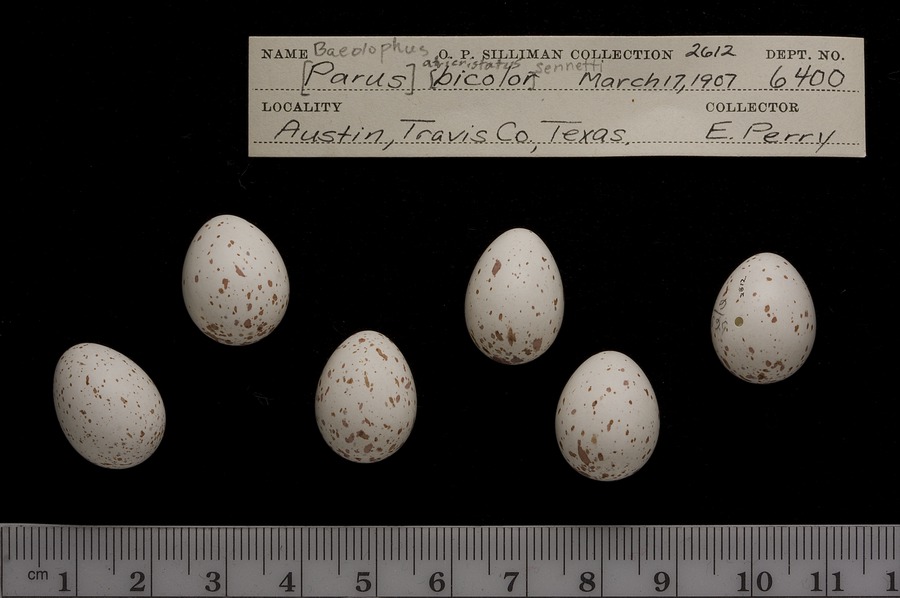 NAME Baeolophus O. P. SILLIMAN COLLECTION 2612 DEPT. NO.
atricristatus sennetti
[Parus] [bicolor] March 17, 1907 6400
LOCALITY COLLECTOR
Austin, Travis Co., Texas. E. Perry
2612
cm 1 2 3 4 5 6 7 8 9 10 11 1